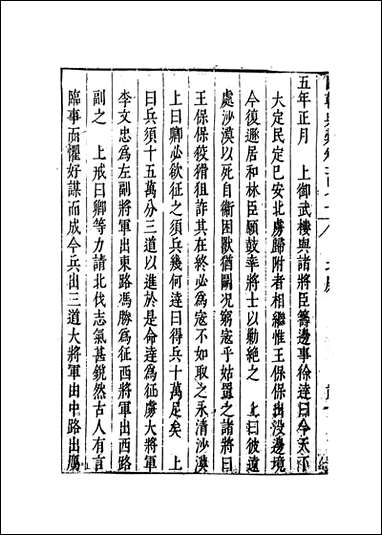 五年正月　上御武樓與諸將臣籌邊事徐達曰今天下
大定民定已安北虜歸附者相繼惟王保保出没邊境
今復遯居和林臣願鼓率將士以勦絶之　上曰彼遠
處沙漠以死自衞困獸猶鬭况窮寇乎姑置之諸將曰
王保保狡猾狙詐其在終必為寇不如取之永清沙漠
上曰卿必欲征之須兵幾何達曰得兵十萬足矣　上
曰兵須十五萬分三道以進於是命達為征虜大將軍
李文忠為左副將軍出東路馮勝為征西將軍出西路
副之　上戒曰卿等力請北伐志氣甚銳然古人有言
臨事而懼好謀而成今兵出三道大將軍由中路出鴈